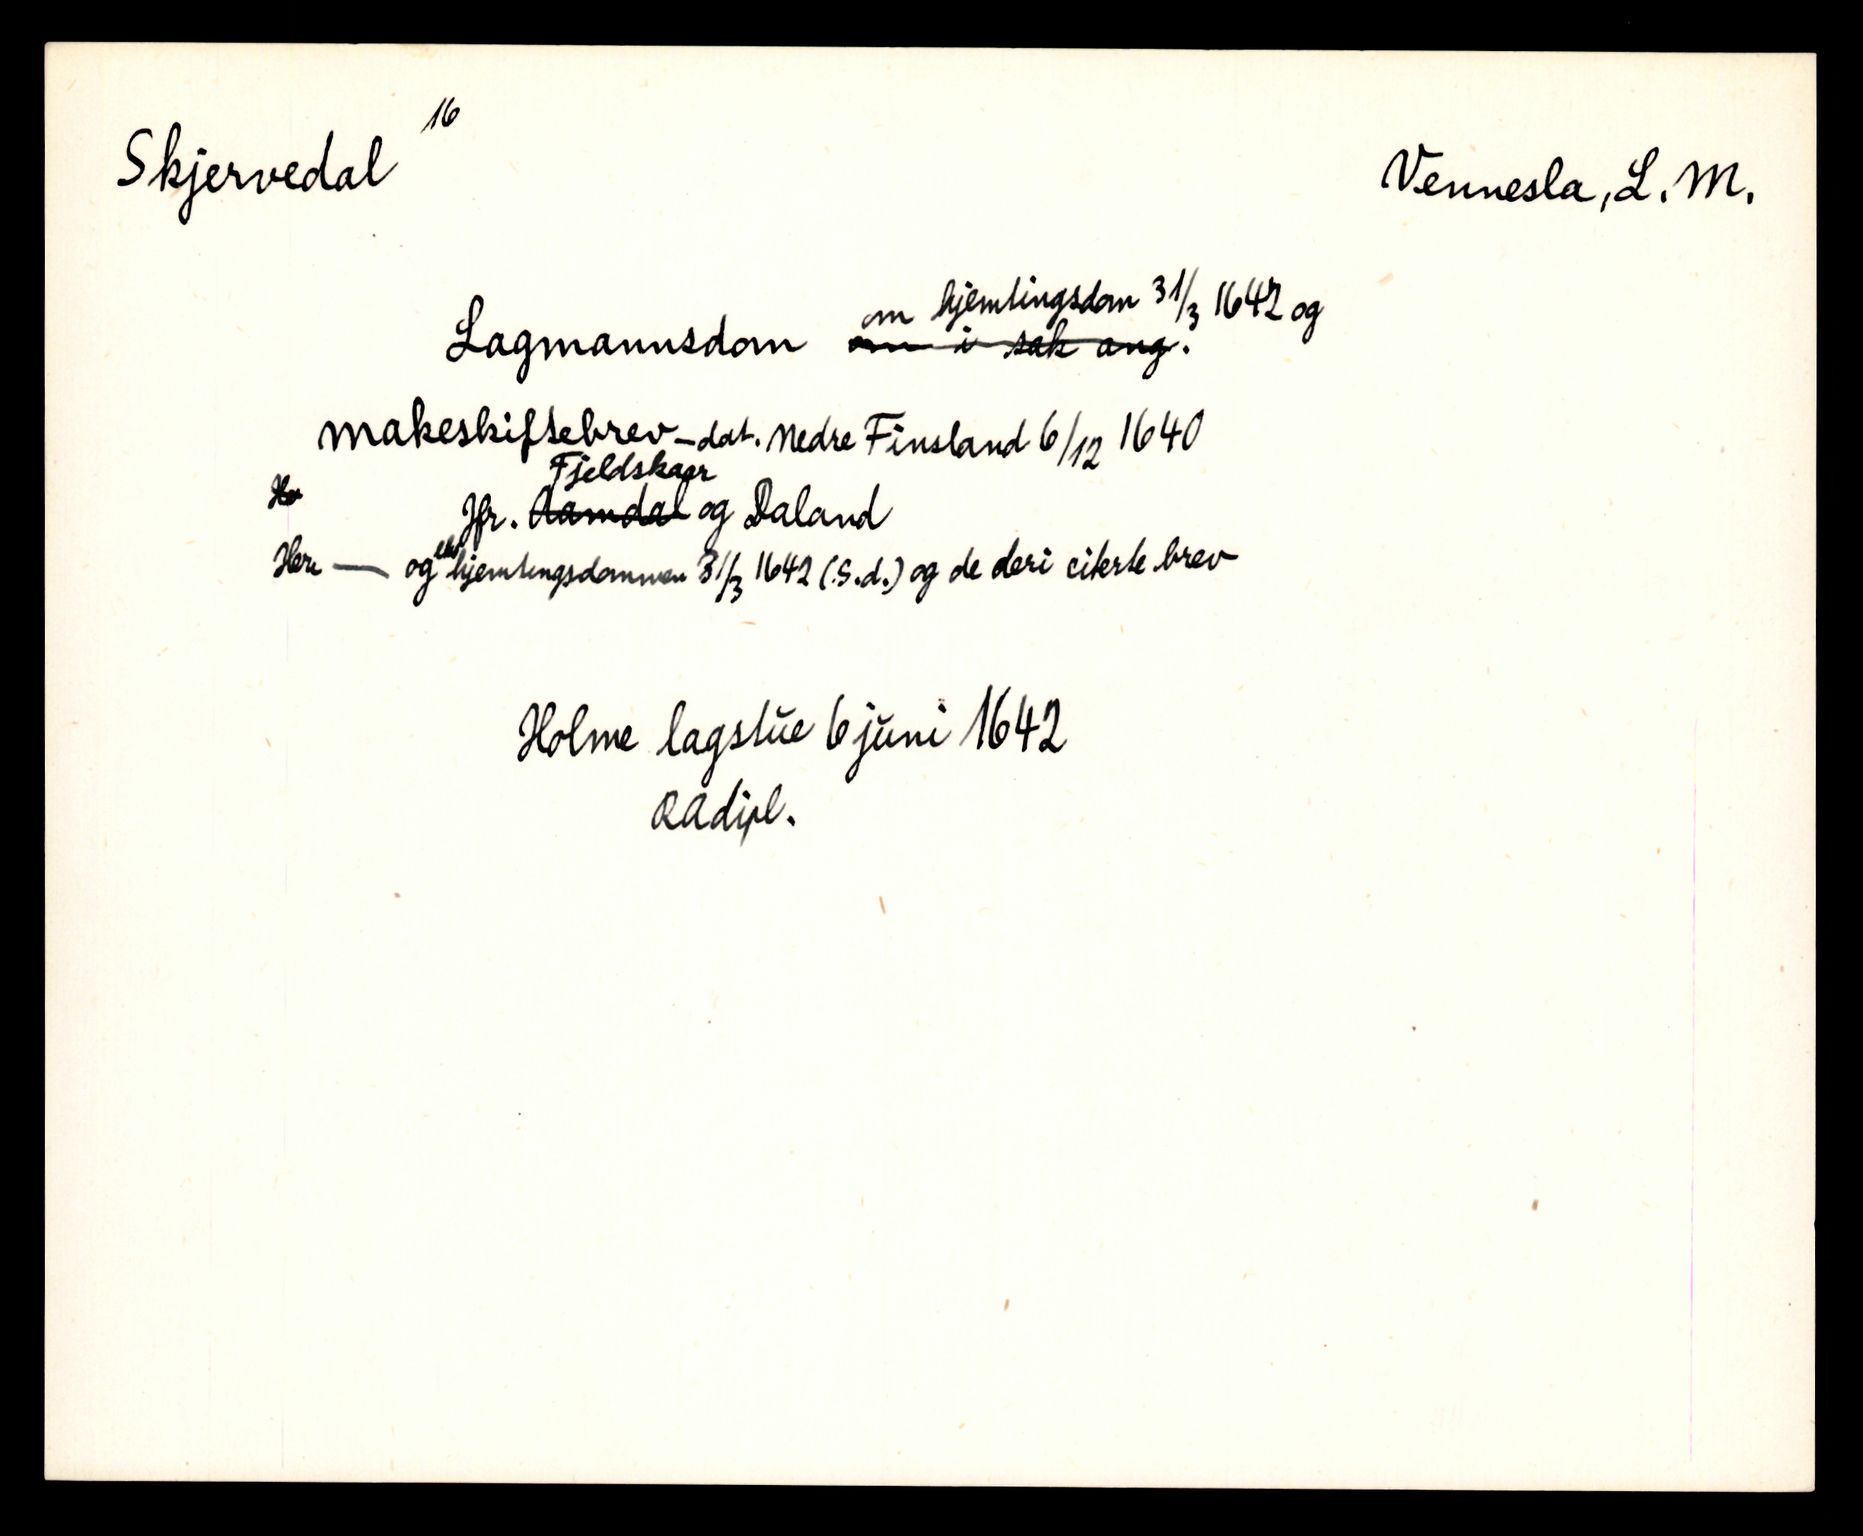 Skjervedal 16
Vennesla, L. M.
om hjemtingsdom 31/3 1642 og
Lagmannsdom om i sak ang.
makeskiftebrev – dat. Nedre Finsland 6/12 1640
Fjeldskaar
Jfr. Aamdal og Daland
Herr — og hjemtingsdommen 31/3 1642 (s.d.) og de deri citerte brev
Holme lagstue 6 juni 1642
RAdipl.